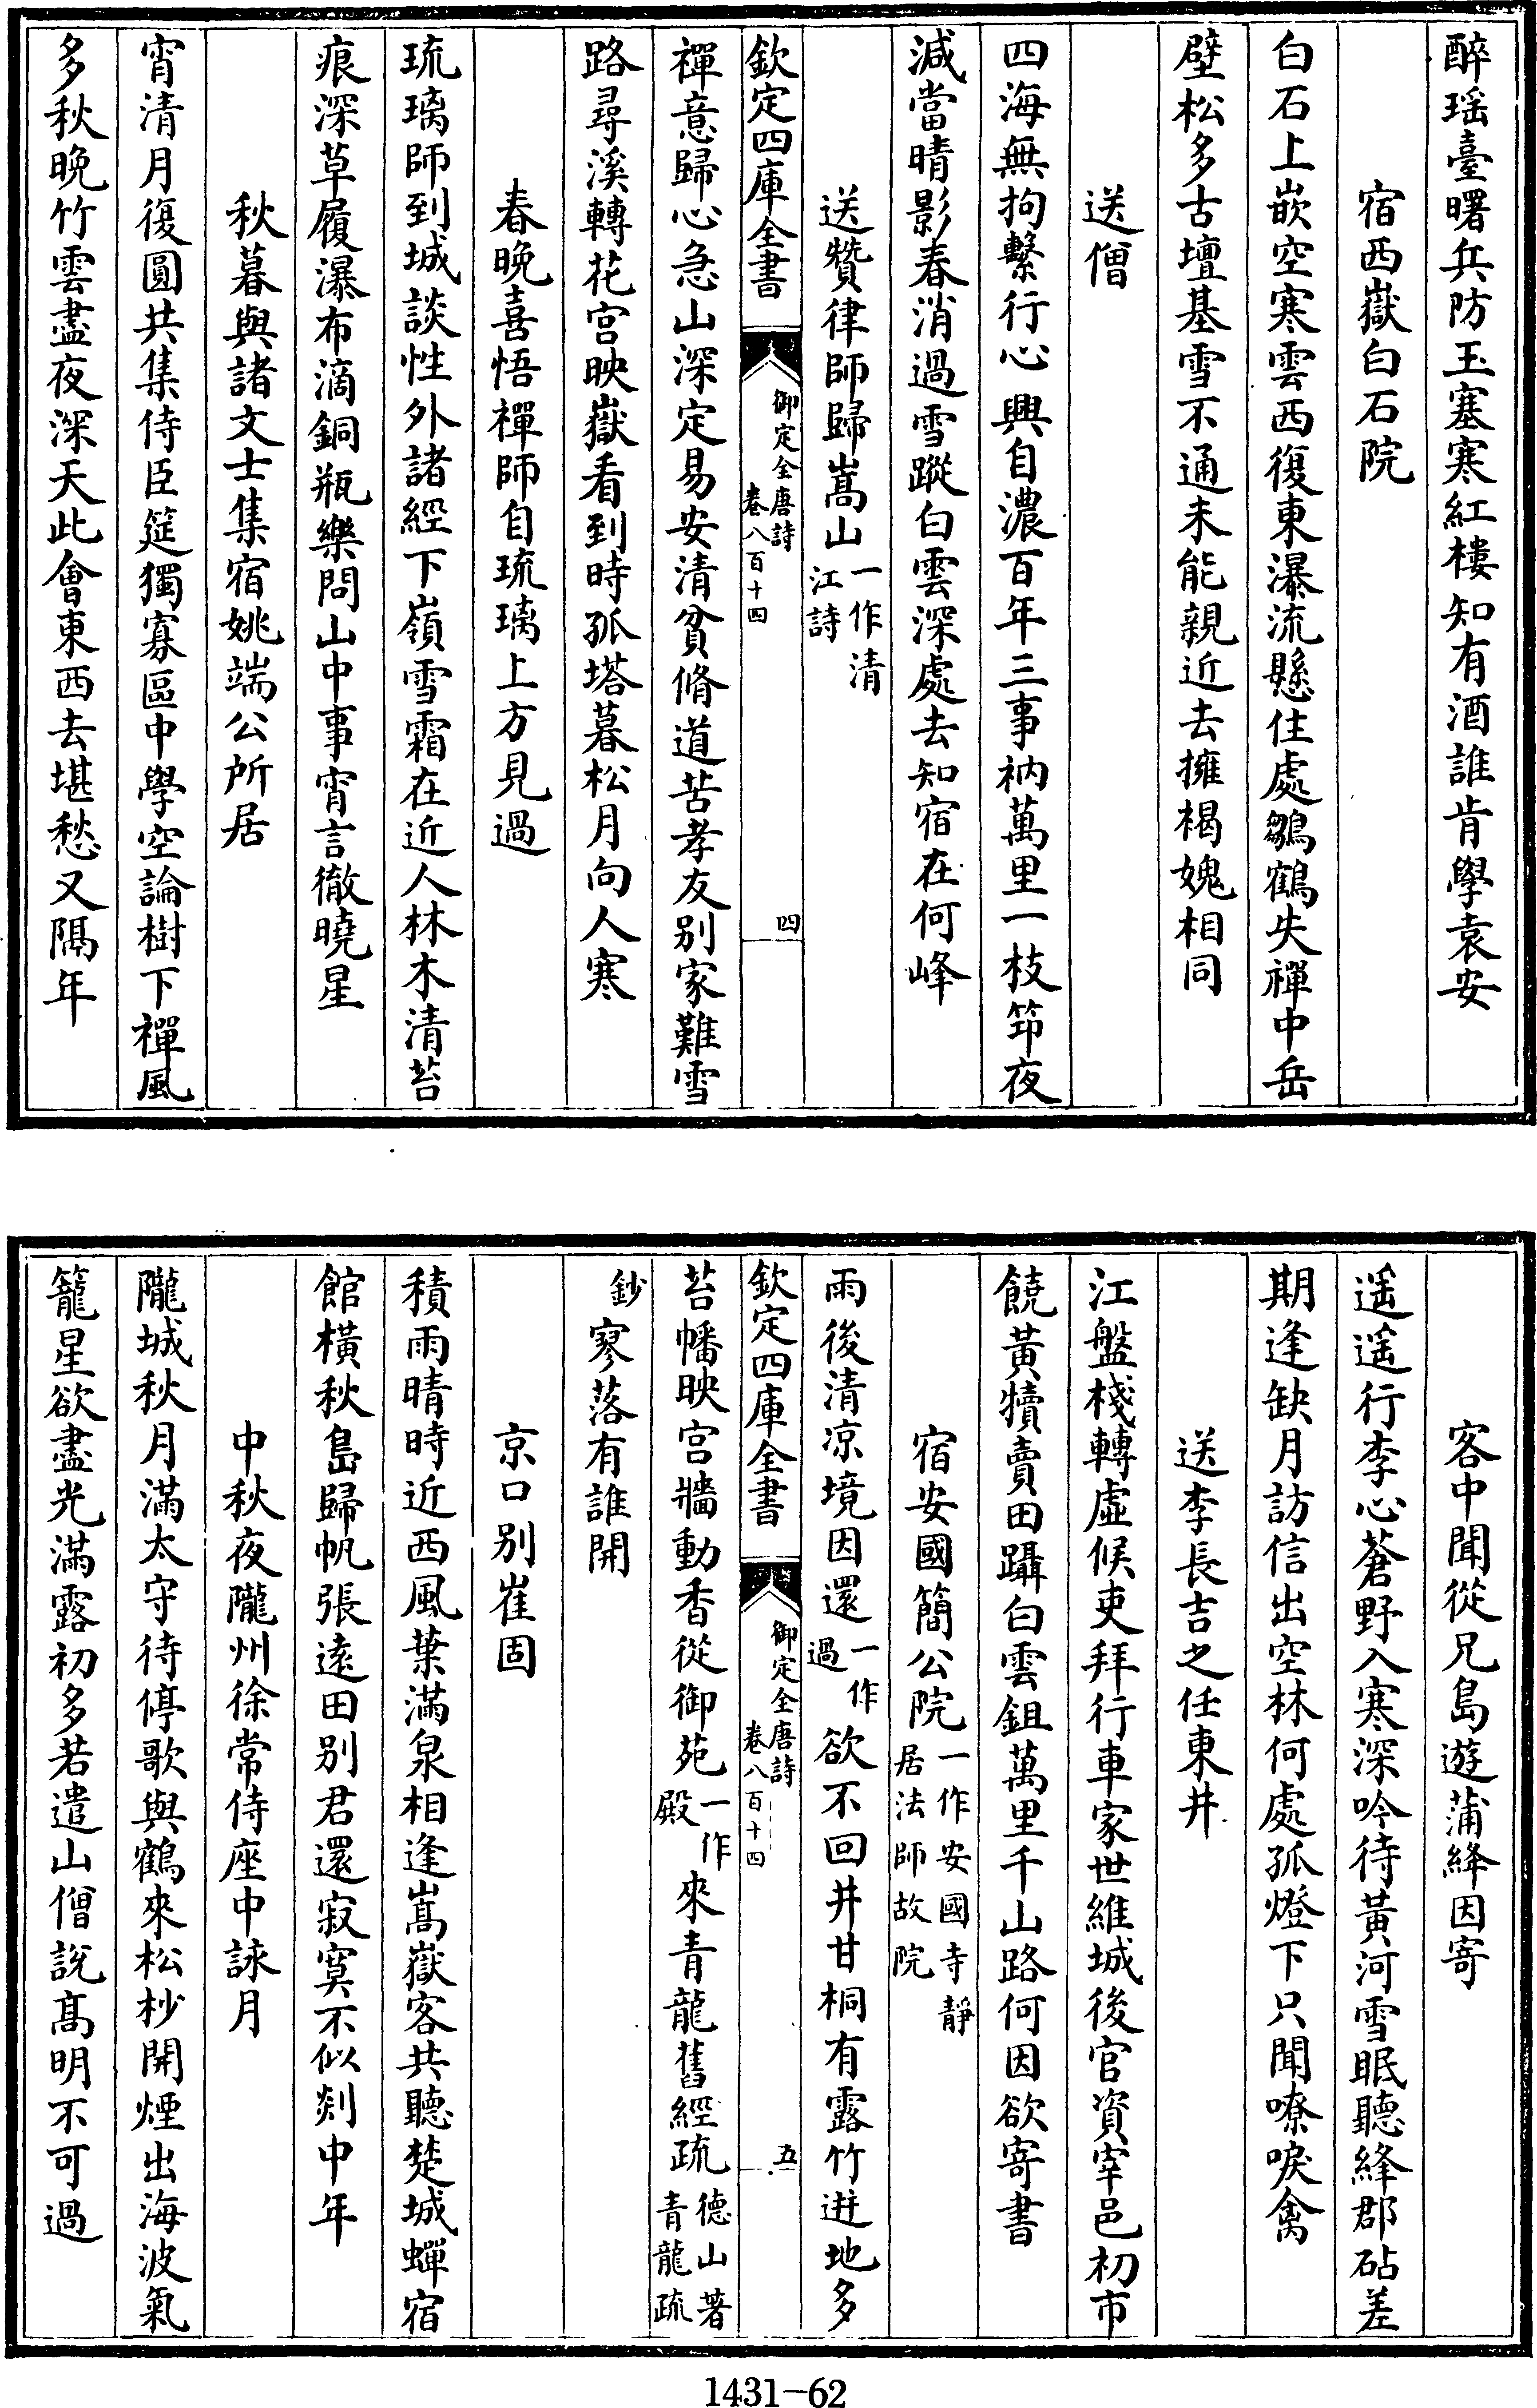 醉瑶臺曙兵防玉塞寒紅樓知有酒誰肯學袁安
宿西嶽白石院
白石上嵌空寒雲西復東瀑流懸住處鶵鶴失禪中岳
壁松多古壇基雪不通未能親近去擁褐媿相同
送僧
四海無拘繫行心興自濃百年三事衲萬里一枝笻夜
減當晴影春消過雪蹤白雲深處去知宿在何峰
送贊律師歸嵩山一作清江詩
欽定四庫全書
御定全唐詩
卷八百十四
四
禪意歸心急山深定易安清貧脩道苦孝友别家難雪
路尋溪轉花宫映嶽看到時孤塔暮松月向人寒
春晚喜悟禪師自琉璃上方見過
琉璃師到城談性外諸經下嶺雪霜在近人林木清苔
痕深草履瀑布滴銅瓶樂問山中事宵言徹曉星
秋暮與諸文士集宿姚端公所居
宵清月復圓共集侍臣筵獨寡區中學空論樹下禪風
多秋晚竹雲盡夜深天此會東西去堪愁又隔年
客中聞從兄島遊蒲絳因寄
遥遥行李心蒼野入寒深吟待黃河雪眠聽絳郡砧差
期逢缺月訪信出空林何處孤燈下只聞嘹唳禽
送李長吉之任東井
江盤棧轉虛候吏拜行車家世維城後官資宰邑初市
饒黃犢賣田躡白雲鉏萬里千山路何因欲寄書
宿安國簡公院一作安國寺靜居法師故院
雨後清凉境因還一作過欲不回井甘桐有露竹迸地多
欽定四庫全書
御定全唐詩
卷八百十四
五
苔幡映宫牆動香從御苑一作殿來青龍舊經疏德山著青龍疏
鈔寥落有誰開
京口别崔固
積雨晴時近西風葉滿泉相逢嵩嶽客共聽楚城蟬宿
館橫秋島歸帆張遠田别君還寂寞不似剡中年
中秋夜隴州徐常侍座中詠月
隴城秋月滿太守待停歌與鶴來松杪開煙出海波氣
籠星欲盡光滿露初多若遣山僧說高明不可過
1431-62